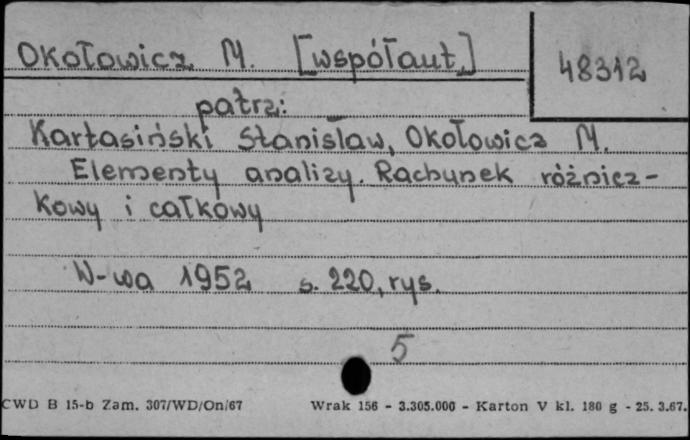 Okołowicz M. [współaut.] 48312
patrz:
Kartasiński Stanisław, Okołowicz M.
Elementy analizy. Rachunek różnicz-
kowy i całkowy
W-wa 1952 s. 220, rys.
5
CWD B 15-b Zam. 307/WD/On/67 Wrak 156 - 3.305.000 - Karton V kl. 180 g - 25. 3.67.